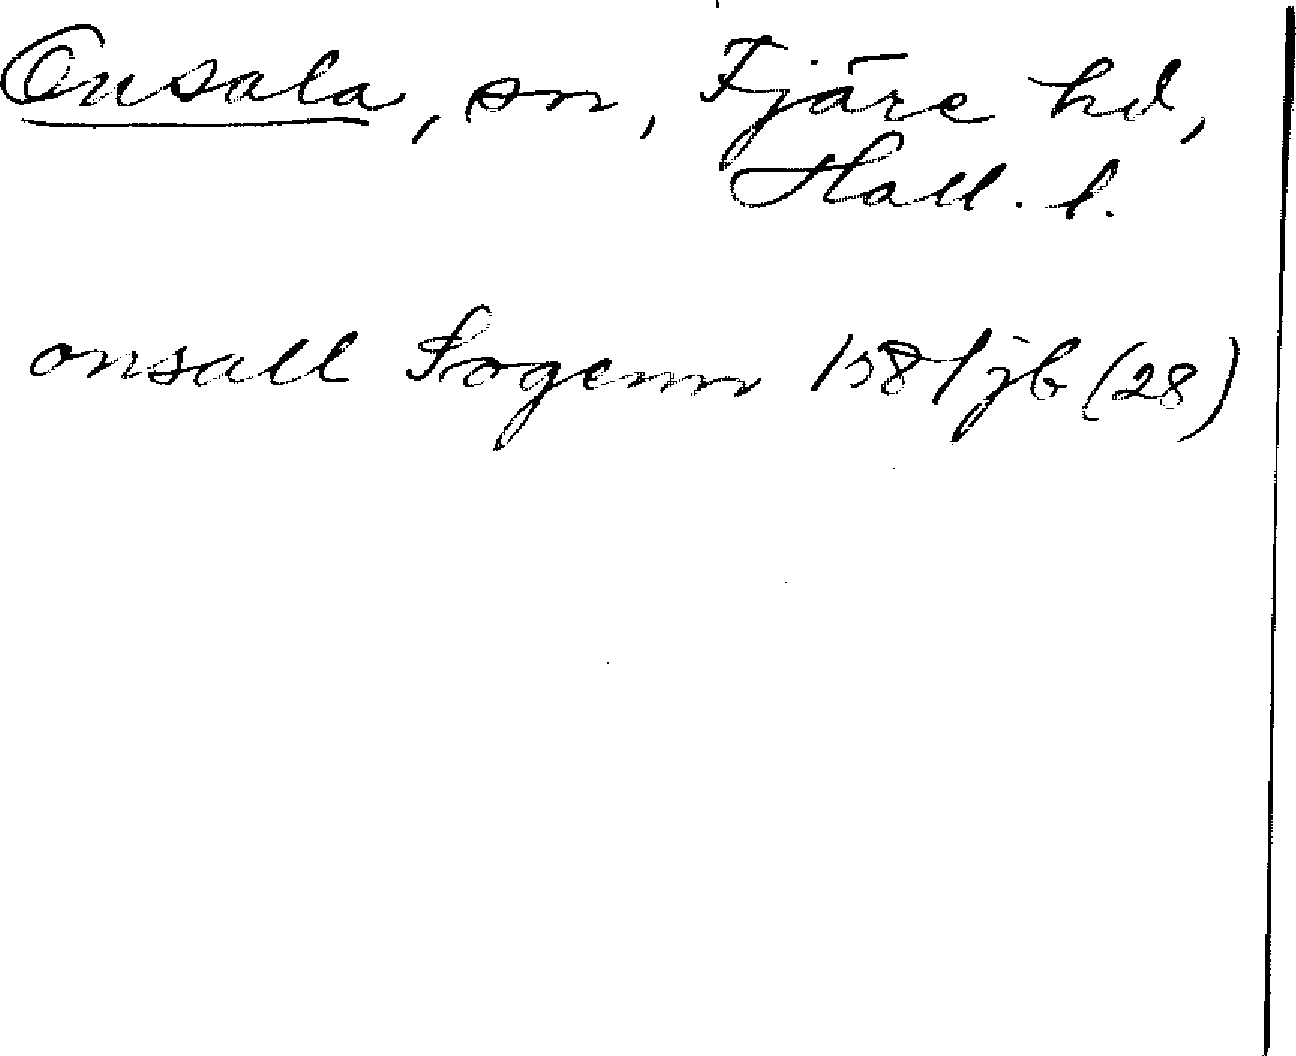 Onsala, sn, Fjäre hd,
Hall. l.
onsall Sogenn 1581 jb (28)